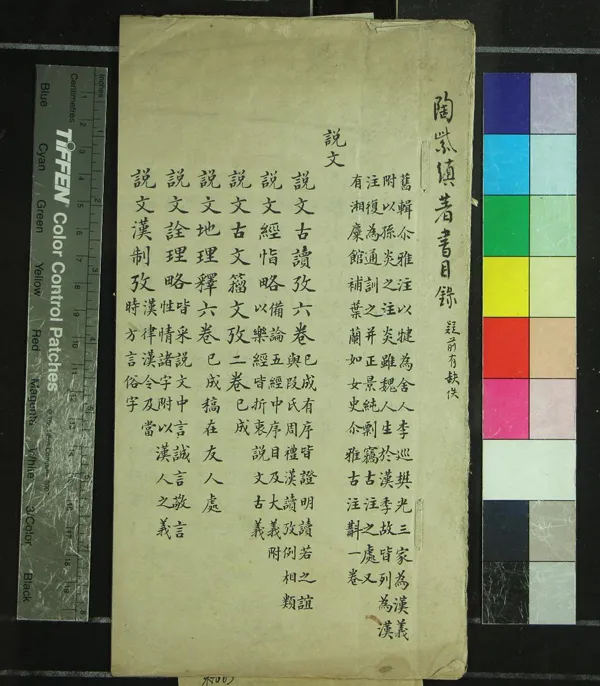 陶紫縝著書目錄 疑前有缺佚
舊輯尒雅注以犍為舍人李巡樊光三家為漢義
附以孫炎之注炎雖魏人生於漢季故皆列為漢
注復為通訓之并正景純剽竊古注之處又
有湘麋館補葉蘭如女史尒雅古注斠一卷
說文
說文古讀攷六卷 已成有序皆證明讀若之誼
與段氏周禮漢讀攷例相類
說文經恉略 備論五經中序目及大義附
以樂經皆折衷說文古義
說文古文籀文攷二卷 已成
說文地理釋六卷 已成稿在友人處
說文詮理略 皆采說文中言誠言敬言
性情諸字附以漢人之義
說文漢制攷 漢律漢令及當
時方言俗字
Inches
Centimetres
TIFFEN Color Control Patches
Blue
Cyan
Green
Yellow
Red
Magenta
White
3/Color
Black